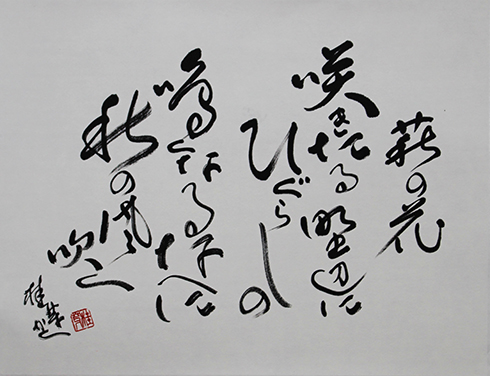 萩の花
咲きたる野辺に
ひぐらしの
鳴なるなへに
秋の風
吹く